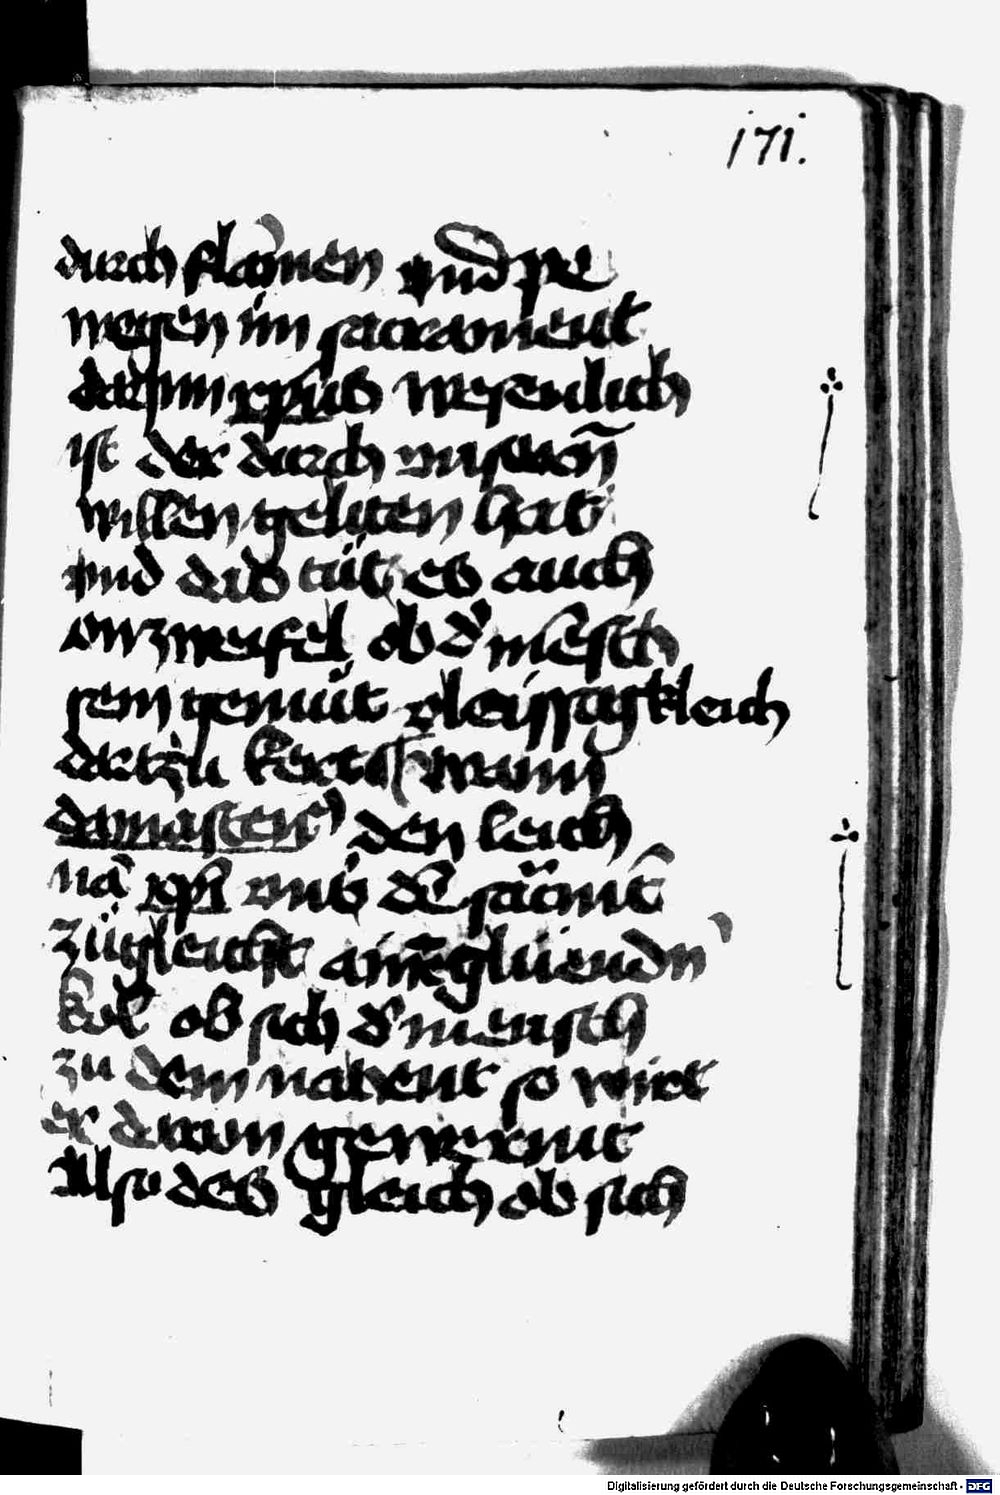 171.
durch flam̄en vnd pe
wegen im sacrament
darjnn xp̄us wesenlich
ist der durch vnserñ
willen geliten hat
vnd das tüt es auch
on zweifel ob d' mēsch
sein gemüt vleyssigkleich
dartzu kert wann
damascen' den leich
nā xp̄i vnd sacīmēt
zügleicht ainē glüendn'
kol ob sich d' mensch
zu dem nahent so wirt
er dauon gewermt
Also des gleich ob sich
Digitalisierung gefördert durch die Deutsche Forschungsgemeinschaft - DFG